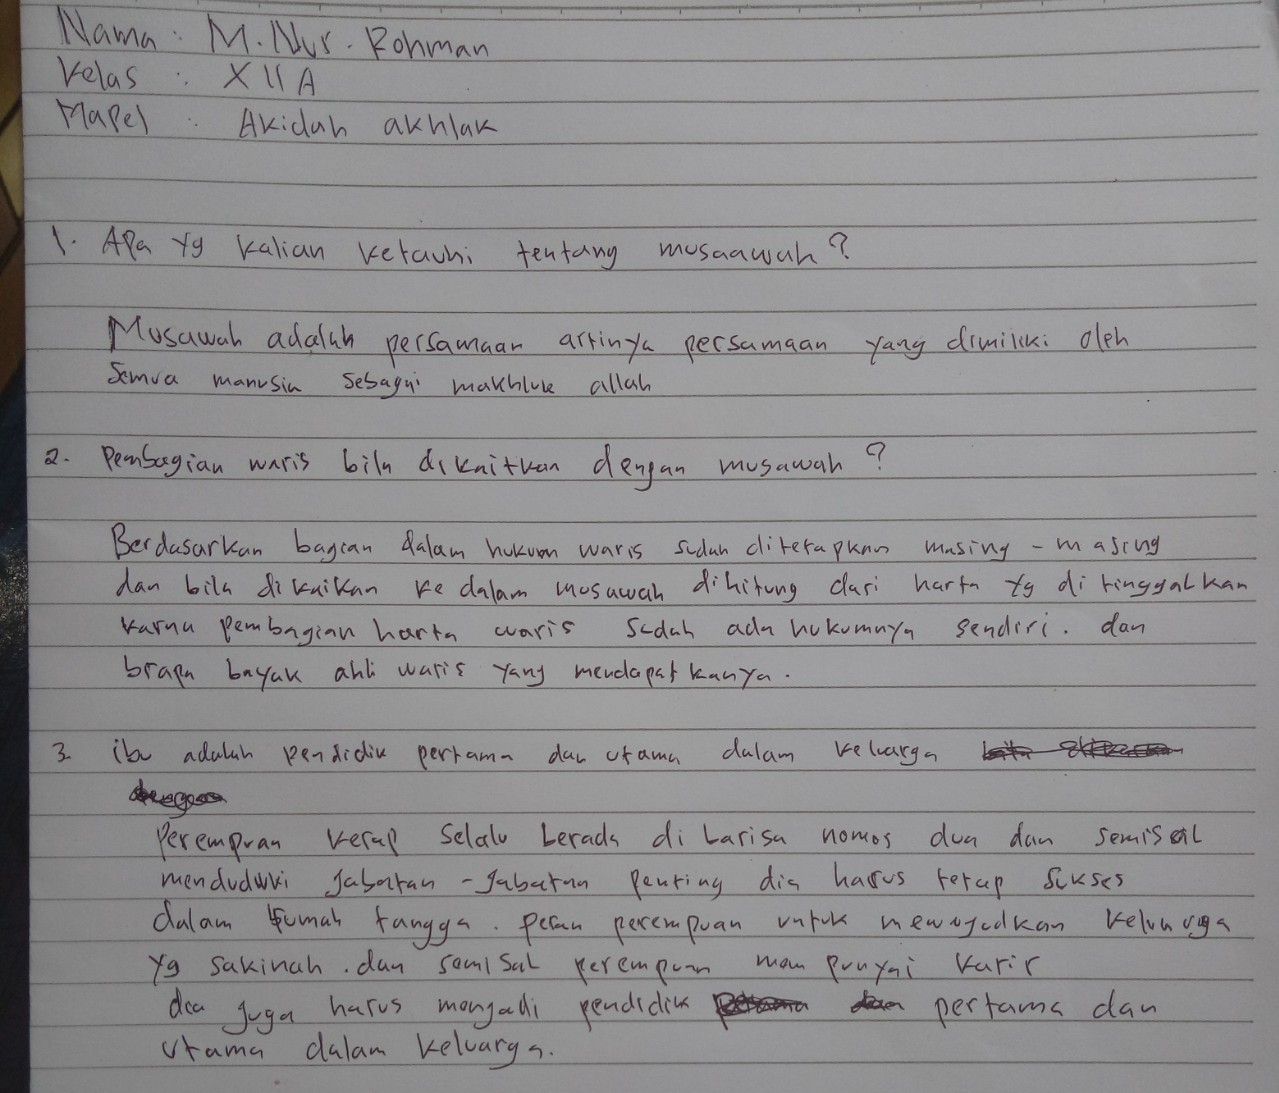 Nama : M. Nur. Rohman
Kelas : XII A
Mapel : Akidah akhlak
1. Apa yg kalian ketauhi tentang musaawah?
Musawah adalah persamaan artinya persamaan yang dimiliki oleh
semua manusia sebagai makhluk allah
2. Pembagian waris bila dikaitkan dengan musawah?
Berdasarkan bagian dalam hukum waris sudah diterapkan masing - masing
dan bila dikaikan ke dalam musawah dihitung dari harta yg di tinggalkan
karna pembagian harta waris sudah ada hukumnya sendiri. dan
brapa bayak ahli waris yang mendapatkanya.
3. ibu adalah pendidik pertama dan utama dalam keluarga
Perempuan kerap selalu berada di barisa nomos dua dan semisal
menduduki jabatan - jabatan penting dia harus tetap sukses
dalam rumah tangga. peran perempuan untuk mewujudkan keluarga
yg sakinah. dan semisal perempuan mempunyai karir
dia juga harus menjadi pendidik pertama dan
utama dalam keluarga.